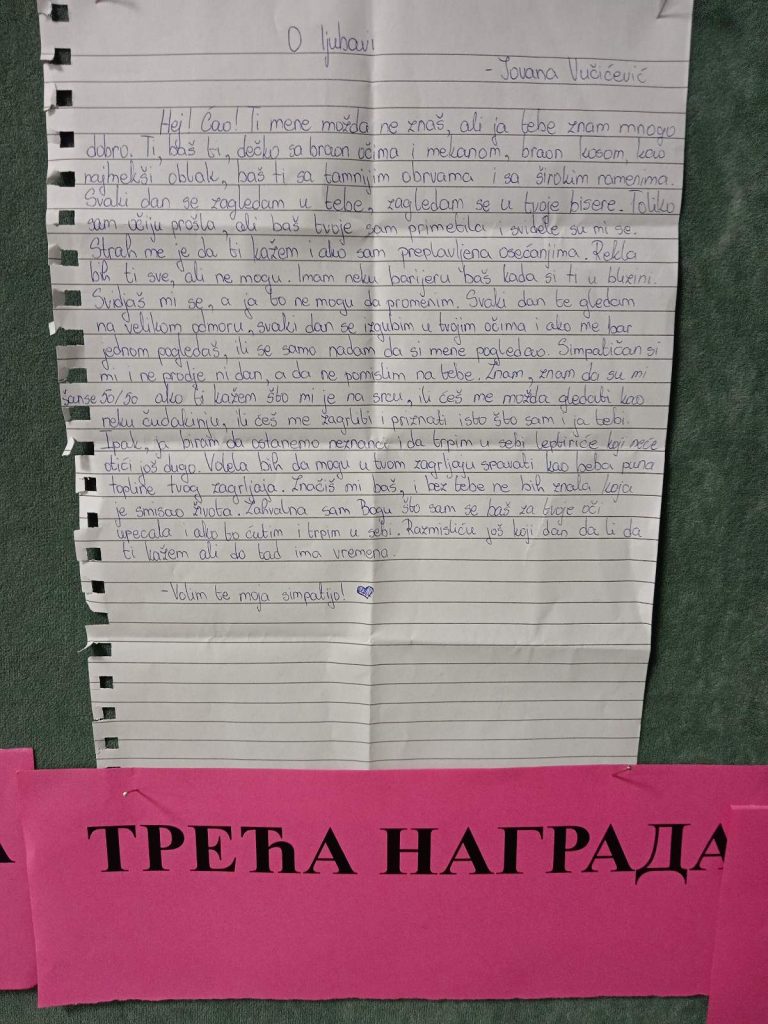 O ljubavi
- Jovana Vučićević
Hej! Ćao! Ti mene možda ne znaš, ali ja tebe znam mnogo
dobro. Ti, baš ti, dečko sa braon očima i mekanom, braon kosom, kao
najmekši oblak, baš ti sa tamnijim obrvama i sa širokim ramenima.
Svaki dan se zagledam u tebe, zagledam se u tvoje bisere. Toliko
sam očiju prošla, ali baš tvoje sam primetila i svidele su mi se.
Strah me je da ti kažem i ako sam preplavljena osećanjima. Rekla
bih ti sve, ali ne mogu. Imam neku barijeru baš kada si ti u blizini.
Svidjaš mi se, a ja to ne mogu da promenim. Svaki dan te gledam
na velikom odmoru, svaki dan se izgubim u tvojim očima i ako me bar
jednom pogledaš, ili se samo nadam da si mene pogledao. Simpatičan si
mi i ne prodje ni dan, a da ne pomislim na tebe. Znam, znam da su mi
šanse 50/50 ako ti kažem što mi je na srcu, ili ćeš me možda gledati kao
neku čudakinju, ili ćeš me zagrliti i priznati isto što sam i ja tebi.
Ipak, ja biram da ostanemo neznanci i da trpim u sebi leptiriće koji neće
otići još dugo. Volela bih da mogu u tvom zagrljaju spavati kao beba puna
topline tvog zagrljaja. Značiš mi baš, i bez tebe ne bih znala koja
je smisao života. Zahvalna sam Bogu što sam se baš za tvoje oči
upecala i ako to ćutim i trpim u sebi. Razmisliću još koji dan da li da
ti kažem ali do tad ima vremena.
-Volim te moja simpatijo!
ТРЕЋА НАГРАДА